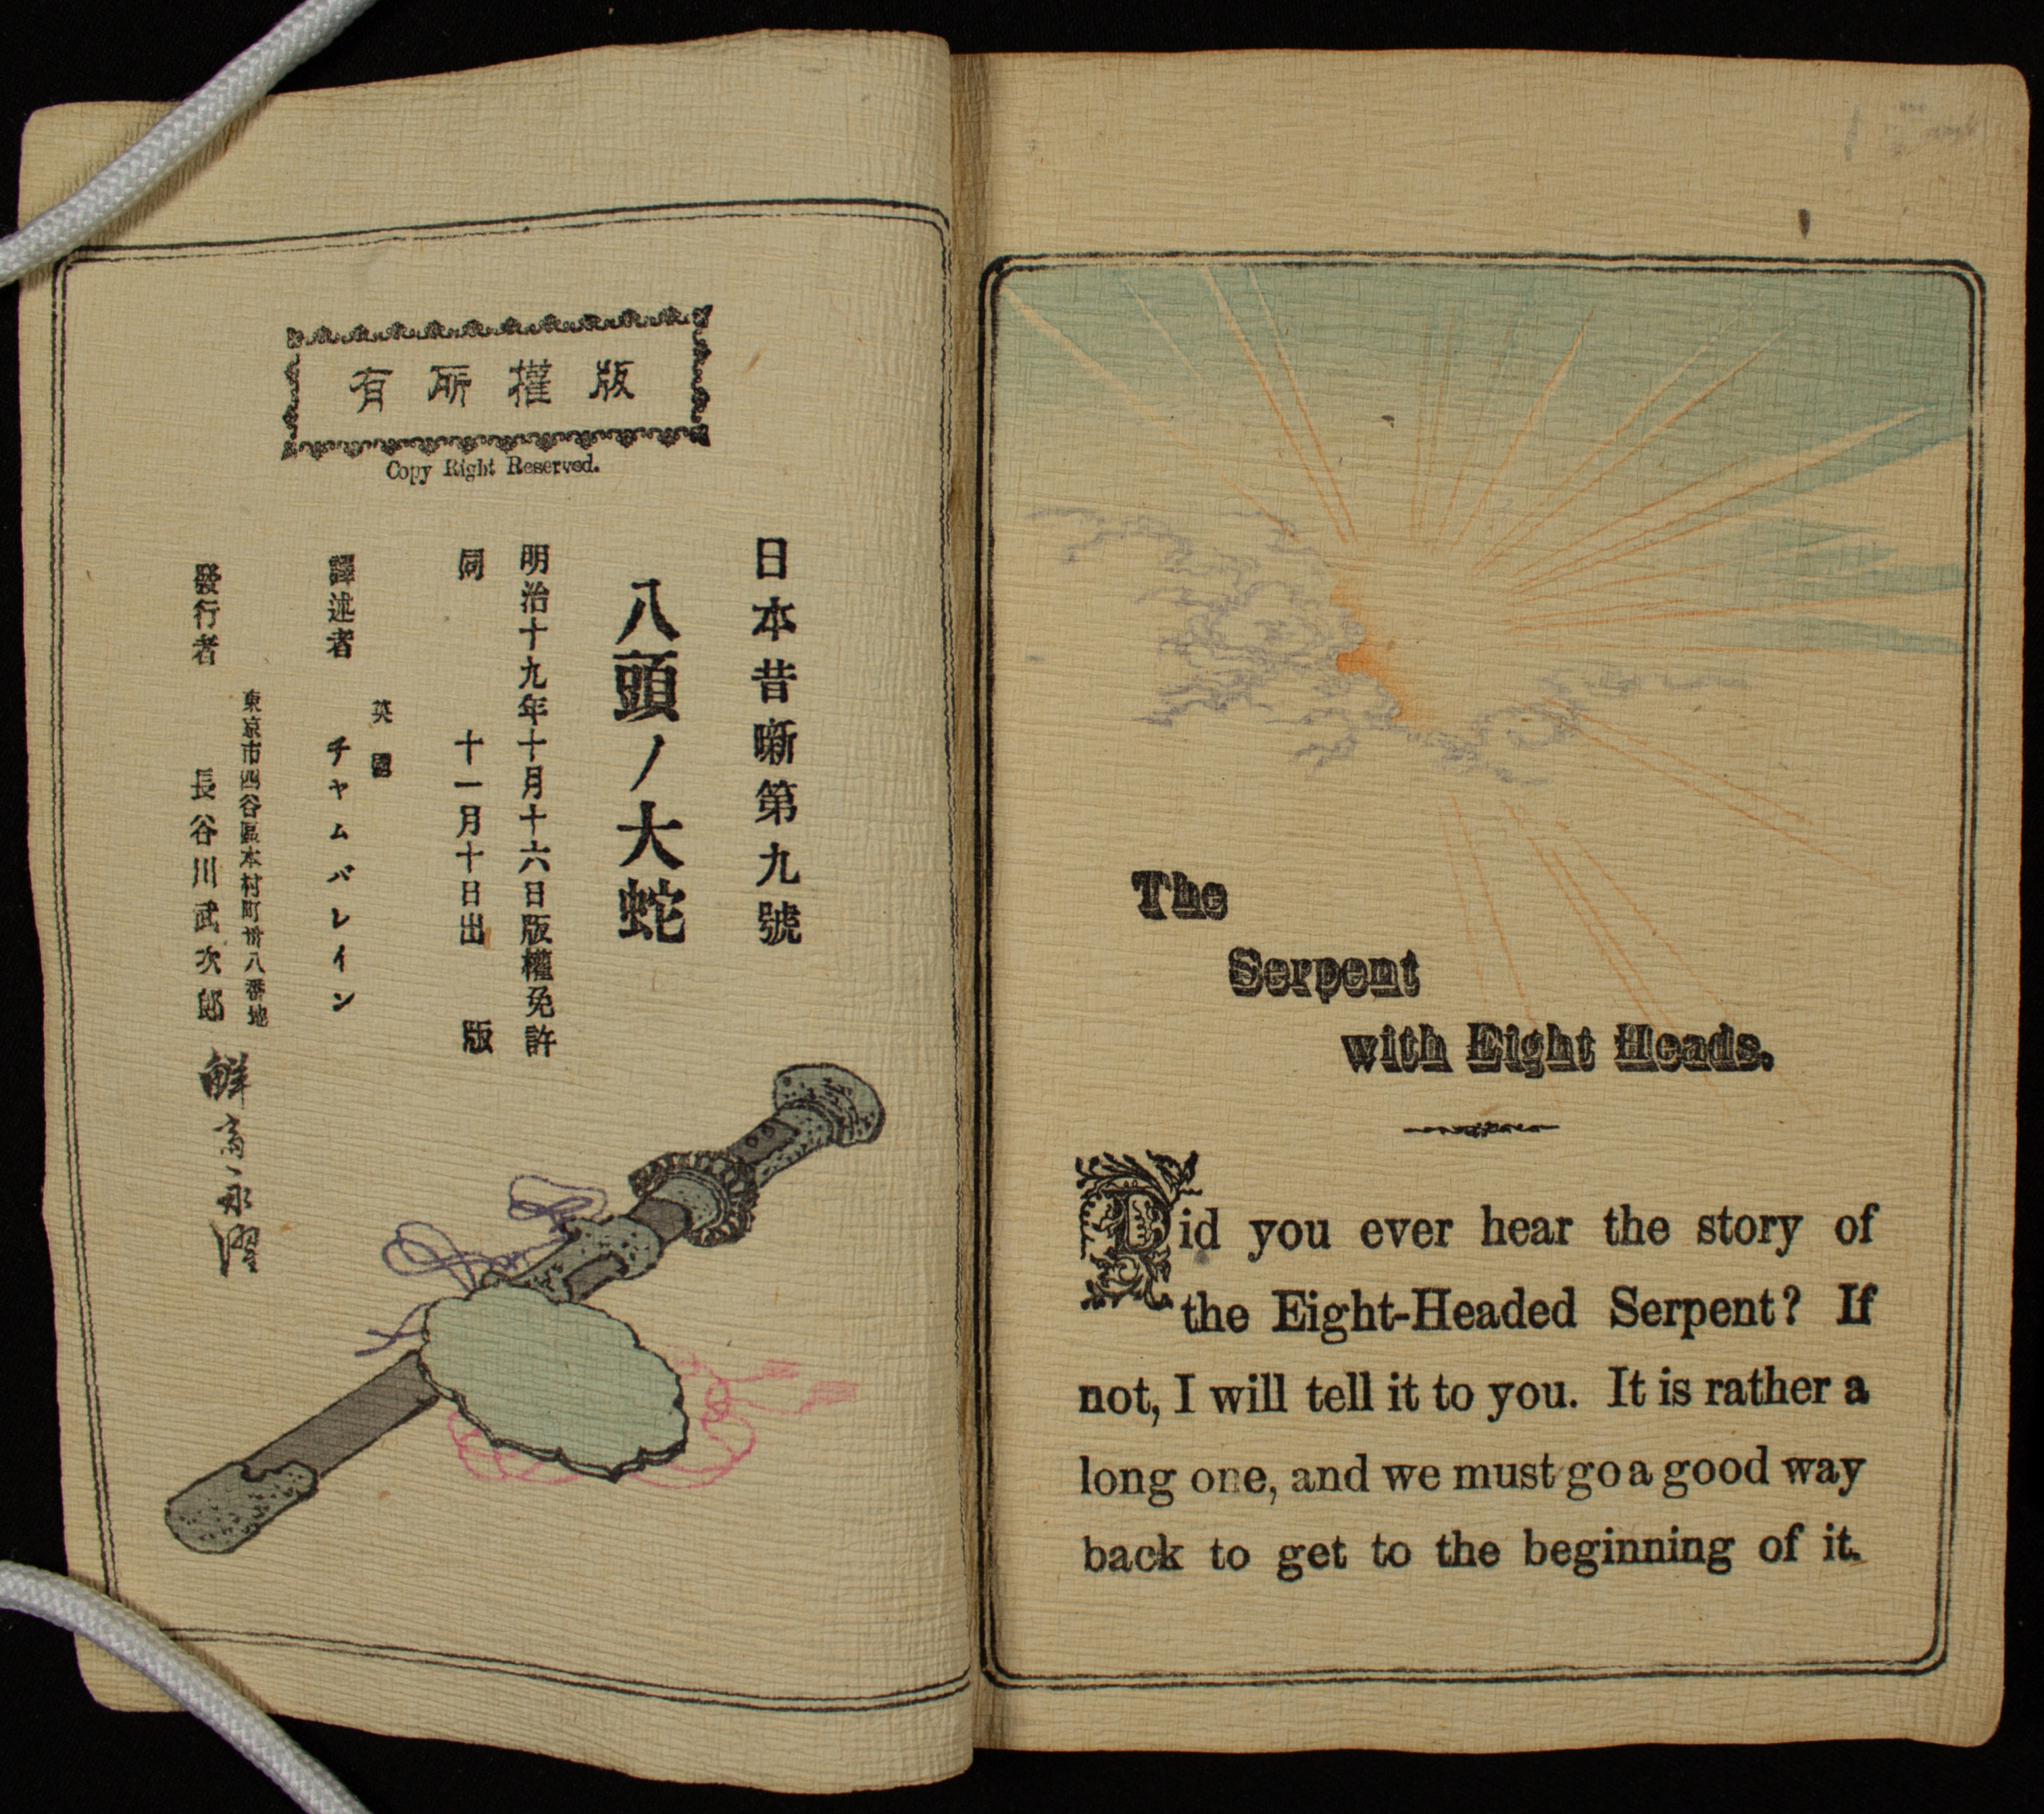 版權所有
Copy Right Reserved.
日本昔噺第九號
八頭ノ大蛇
明治十九年十月十六日版權免許
同 十一月十日出 版
英國
譯述者 チャムバレイン
東京市四谷區本村町卅八番地
發行者 長谷川武次郎
鮮斎永濯
The
Serpent
with Eight Heads.
Did you ever hear the story of
the Eight-Headed Serpent? If
not, I will tell it to you. It is rather a
long one, and we must go a good way
back to get to the beginning of it.